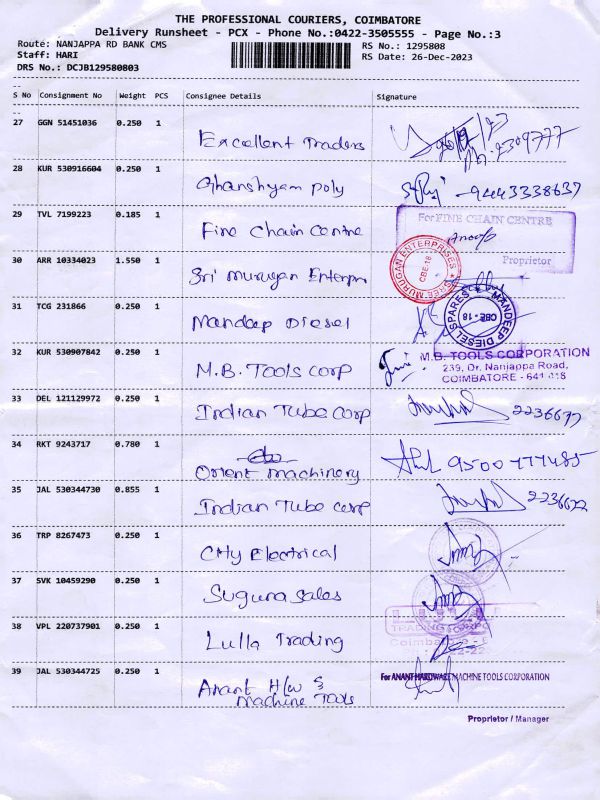 THE PROFESSIONAL COURIERS, COIMBATORE
Delivery Runsheet - PCX - Phone No.:0422-3505555 - Page No.:3
Route: NANJAPPA RD BANK CMS
RS No.: 1295808
Staff: HARI
RS Date: 26-Dec-2023
DRS No.: DCJB129580803
S No Consignment No Weight PCS Consignee Details Signature
27 GGN 51451036 0.250 1
Excellent Traders
28 KUR 530916604 0.250 1
Ghanshyam poly 9443338637
29 TVL 7199223 0.185 1
Fine Chain Centre
For FINE CHAIN CENTRE
Anoop
Proprietor
30 ARR 10334023 1.550 1
Sri Murugan Enterpri
SREE MURUGAN ENTERPRISES
CBE-18
31 TCG 231866 0.250 1
Mandeep Diesel
MANDEEP DIESEL SPARES
CBE-18
32 KUR 530907842 0.250 1
M.B. Tools corp
M.B. TOOLS CORPORATION
239, Dr. Nanjappa Road,
COIMBATORE - 641 018
33 DEL 121129972 0.250 1
Indian Tube corp
34 RKT 9243717 0.780 1
Orient machinery
35 JAL 530344730 0.855 1
Indian Tube corp 2236622
36 TRP 8267473 0.250 1
City Electrical
37 SVK 10459290 0.250 1
Suguna Sales
38 VPL 220737901 0.250 1
Lulla Trading
39 JAL 530344725 0.250 1
Anant H/w &
Machine Tools
For ANANT HARDWARE MACHINE TOOLS CORPORATION
Proprietor / Manager